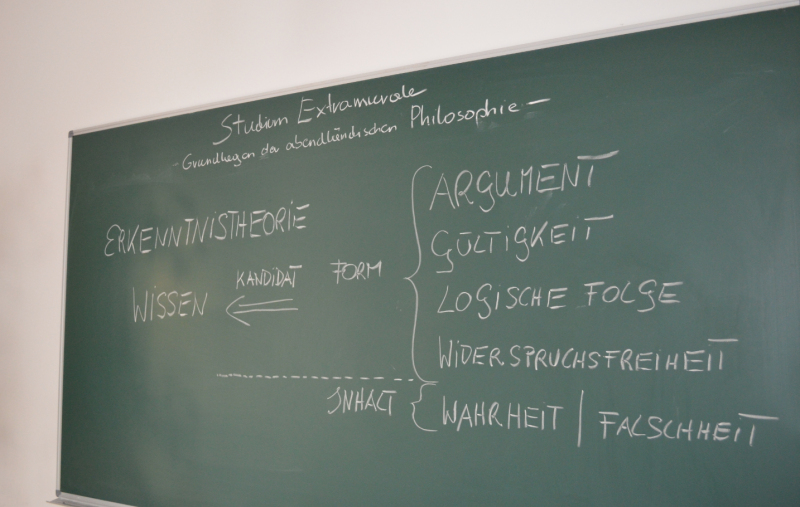 Studium Extramurale
- Grundlagen der abendländischen Philosophie -
ERKENNTNISTHEORIE
WISSEN
KANDIDAT
FORM
ARGUMENT
GÜLTIGKEIT
LOGISCHE FOLGE
WIDERSPRUCHSFREIHEIT
INHALT
WAHRHEIT | FALSCHHEIT